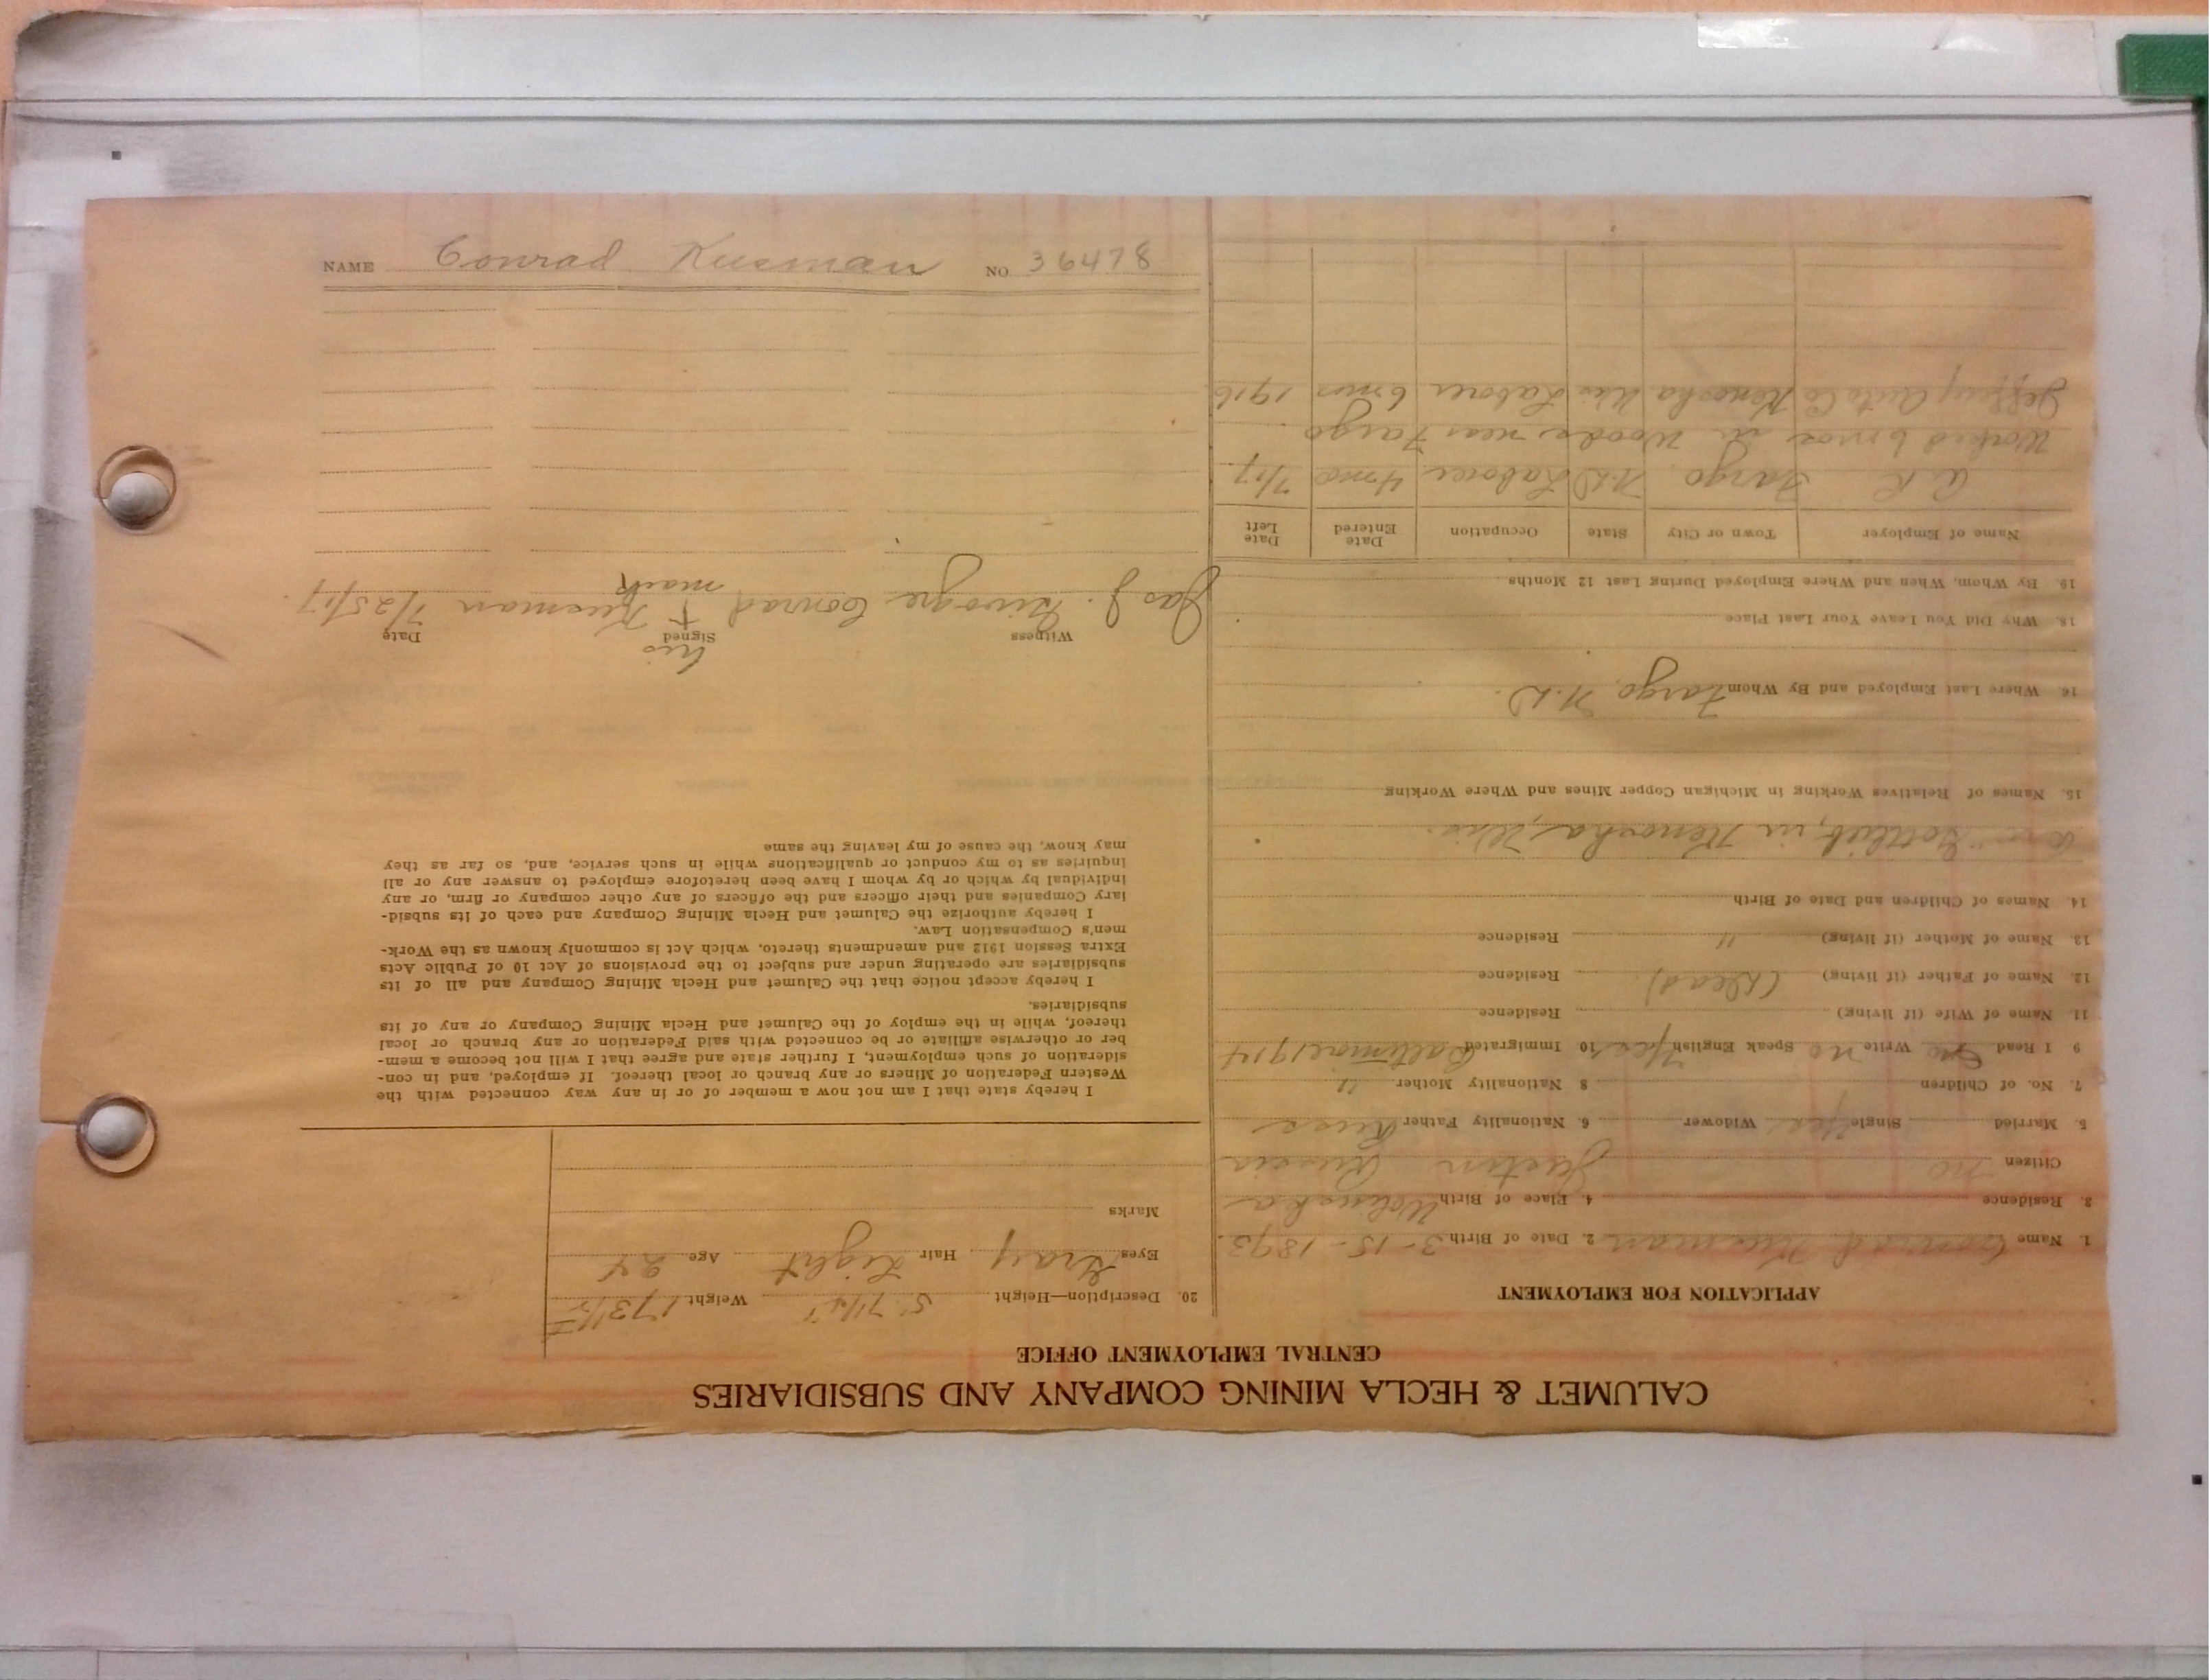 CALUMET & HECLA MINING COMPANY AND SUBSIDIARIES
CENTRAL EMPLOYMENT OFFICE
APPLICATION FOR EMPLOYMENT
1. Name Conrad Kusman 2. Date of Birth 3-15-1893.
3. Residence 4. Place of Birth
Citizen no Russia
5. Married Single Yes Widower 6. Nationality Father Russ
7. No. of Children 8 Nationality Mother "
9 I Read Write no Speak English Yes 10 Immigrated Baltimore 1914
11. Name of Wife (if living) Residence
12. Name of Father (if living) (Dead). Residence
13. Name of Mother (if living) " Residence
14. Names of Children and Date of Birth
Bro Gottlieb, in Kenosha, Wis.
15. Names of Relatives Working in Michigan Copper Mines and Where Working
16. Where Last Employed and By Whom Fargo. N.D.
18. Why Did You Leave Your Last Place
19. By Whom, When and Where Employed During Last 12 Months
Name of Employer Town or City State Occupation Date Entered Date Left
Fargo. N.D Laborer 4 mo 7/17.
Worked 6 mos in Woods near Fargo
Jeffery Auto Co Kenosha Wis Laborer 6 mos 1916
20. Description—Height 5' 7 1/4" Weight 173 1/2
Eyes Gray Hair Light Age 24
Marks
I hereby state that I am not now a member of or in any way connected with the
Western Federation of Miners or any branch or local thereof. If employed, and in con-
sideration of such employment, I further state and agree that I will not become a mem-
ber or otherwise affiliate or be connected with said Federation or any branch or local
thereof, while in the employ of the Calumet and Hecla Mining Company or any of its
subsidiaries.
I hereby accept notice that the Calumet and Hecla Mining Company and all of its
subsidiaries are operating under and subject to the provisions of Act 10 of Public Acts
Extra Session 1912 and amendments thereto, which Act is commonly known as the Work-
men's Compensation Law.
I hereby authorize the Calumet and Hecla Mining Company and each of its subsid-
iary Companies and their officers and the officers of any other company or firm, or any
individual by which or by whom I have been heretofore employed to answer any or all
inquiries as to my conduct or qualifications while in such service, and, so far as they
may know, the cause of my leaving the same
his
Witness Signed Date
Jas J. Conrad + Kusman 7/25/17.
mark
NAME Conrad Kusman NO. 36478